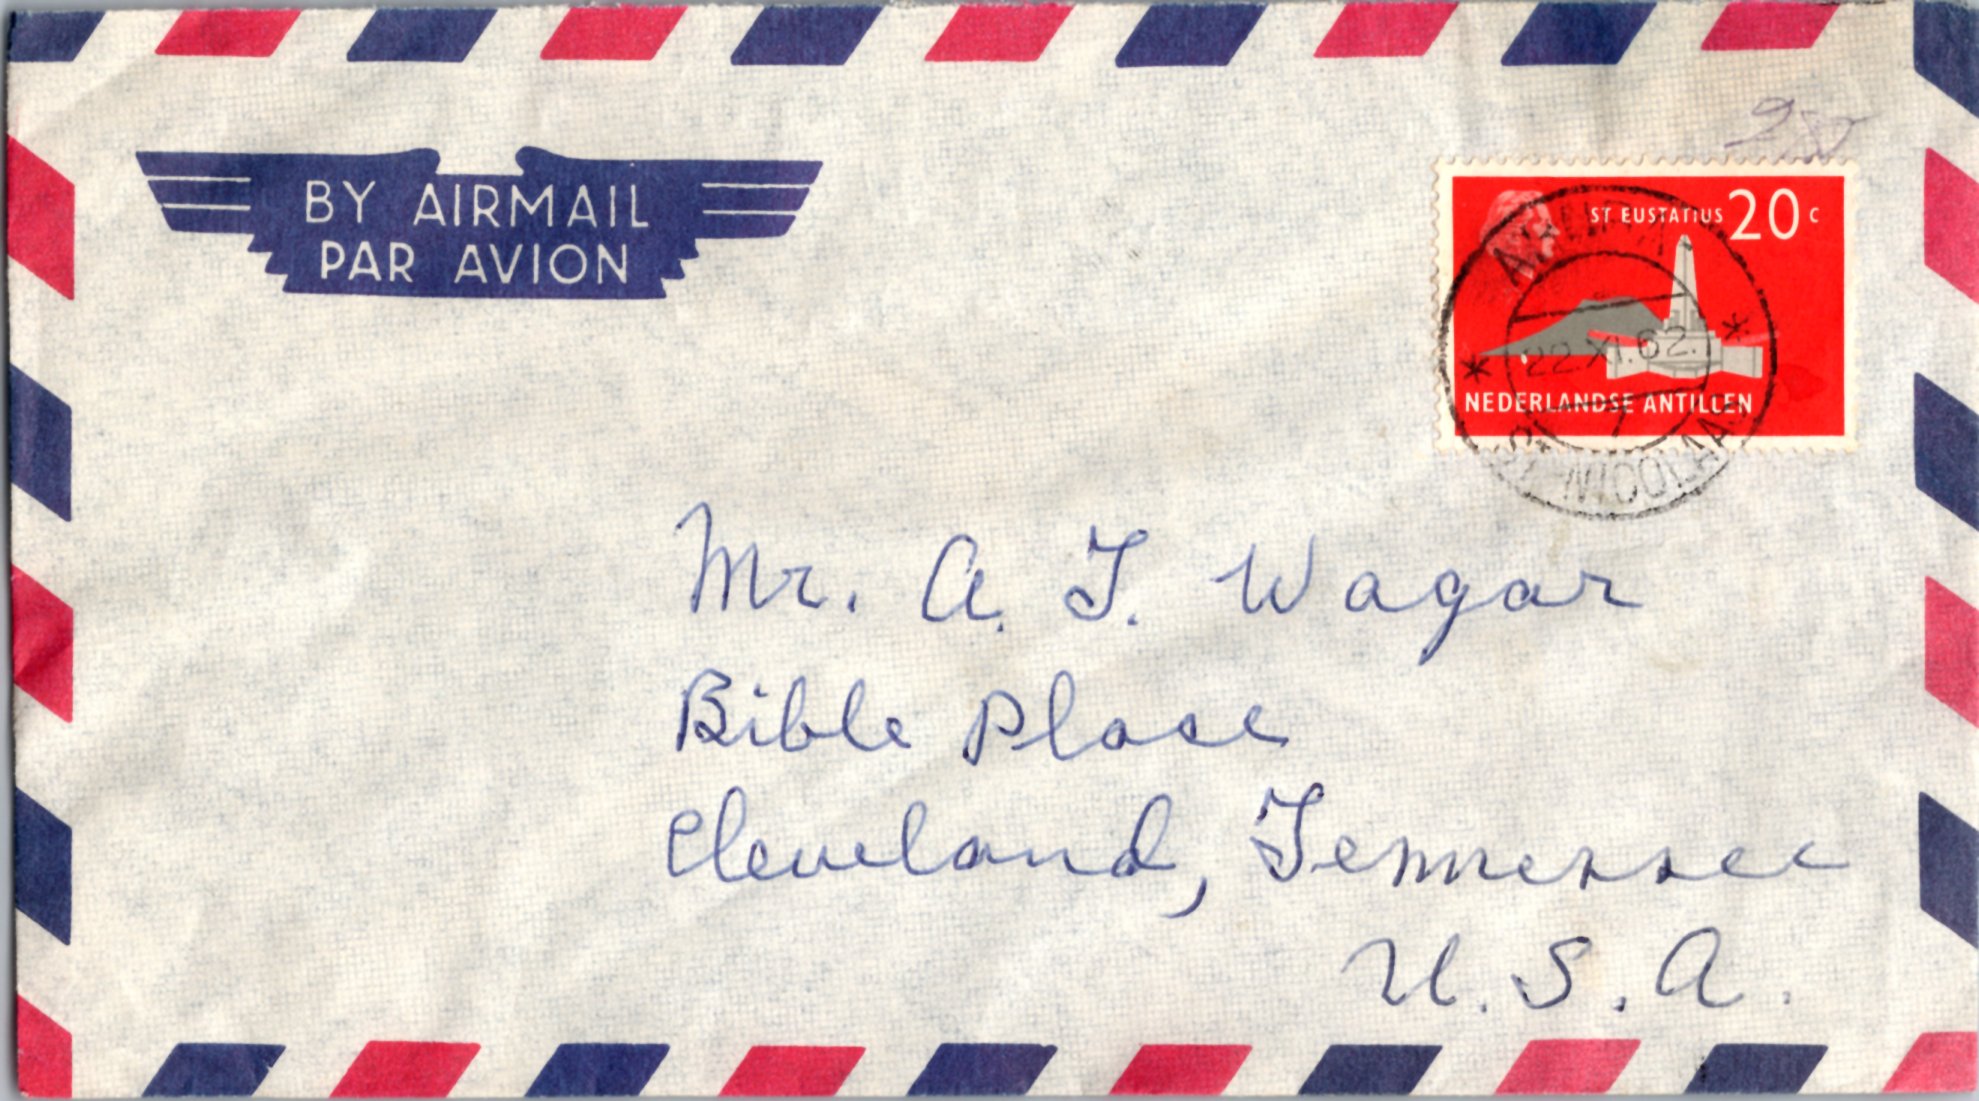 BY AIRMAIL
PAR AVION
ST EUSTATIUS 20 c
NEDERLANDSE ANTILLEN
ARUBA
22.XI.62.
7
ST. NICOLAAS
Mr. A. T. Wagar
Bible Place
Cleveland, Tennessee
U. S. A.